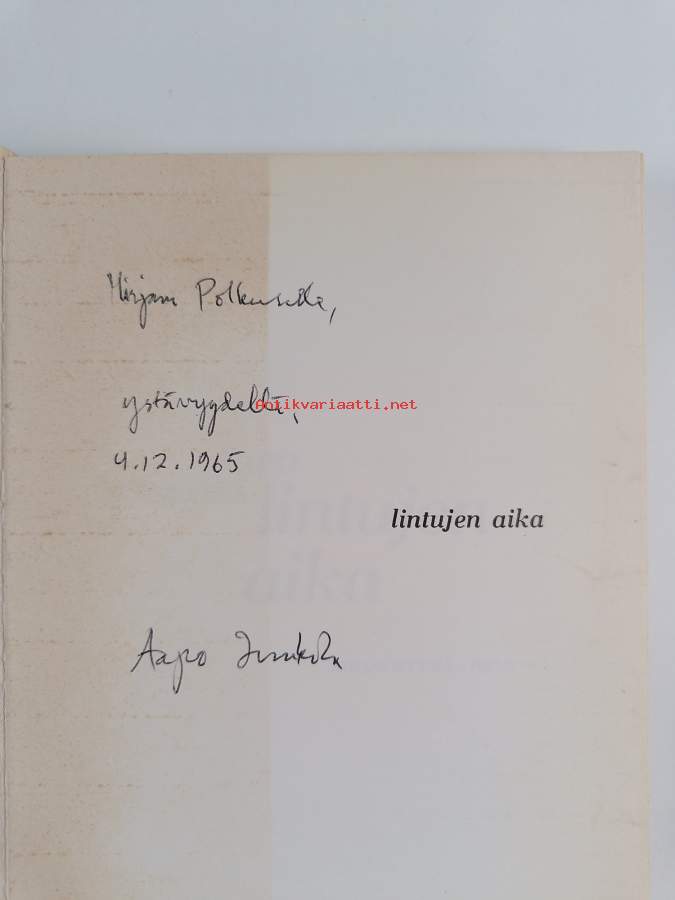 Mirjam Polkuselle,
ystävyydellä,
Antikvariaatti.net
4.12.1965
lintujen
aika
lintujen aika
Aapo Junkola